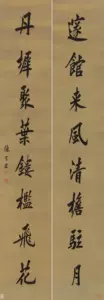 邃館来風清檐駐月
丹墀聚葉鏤檻飛花